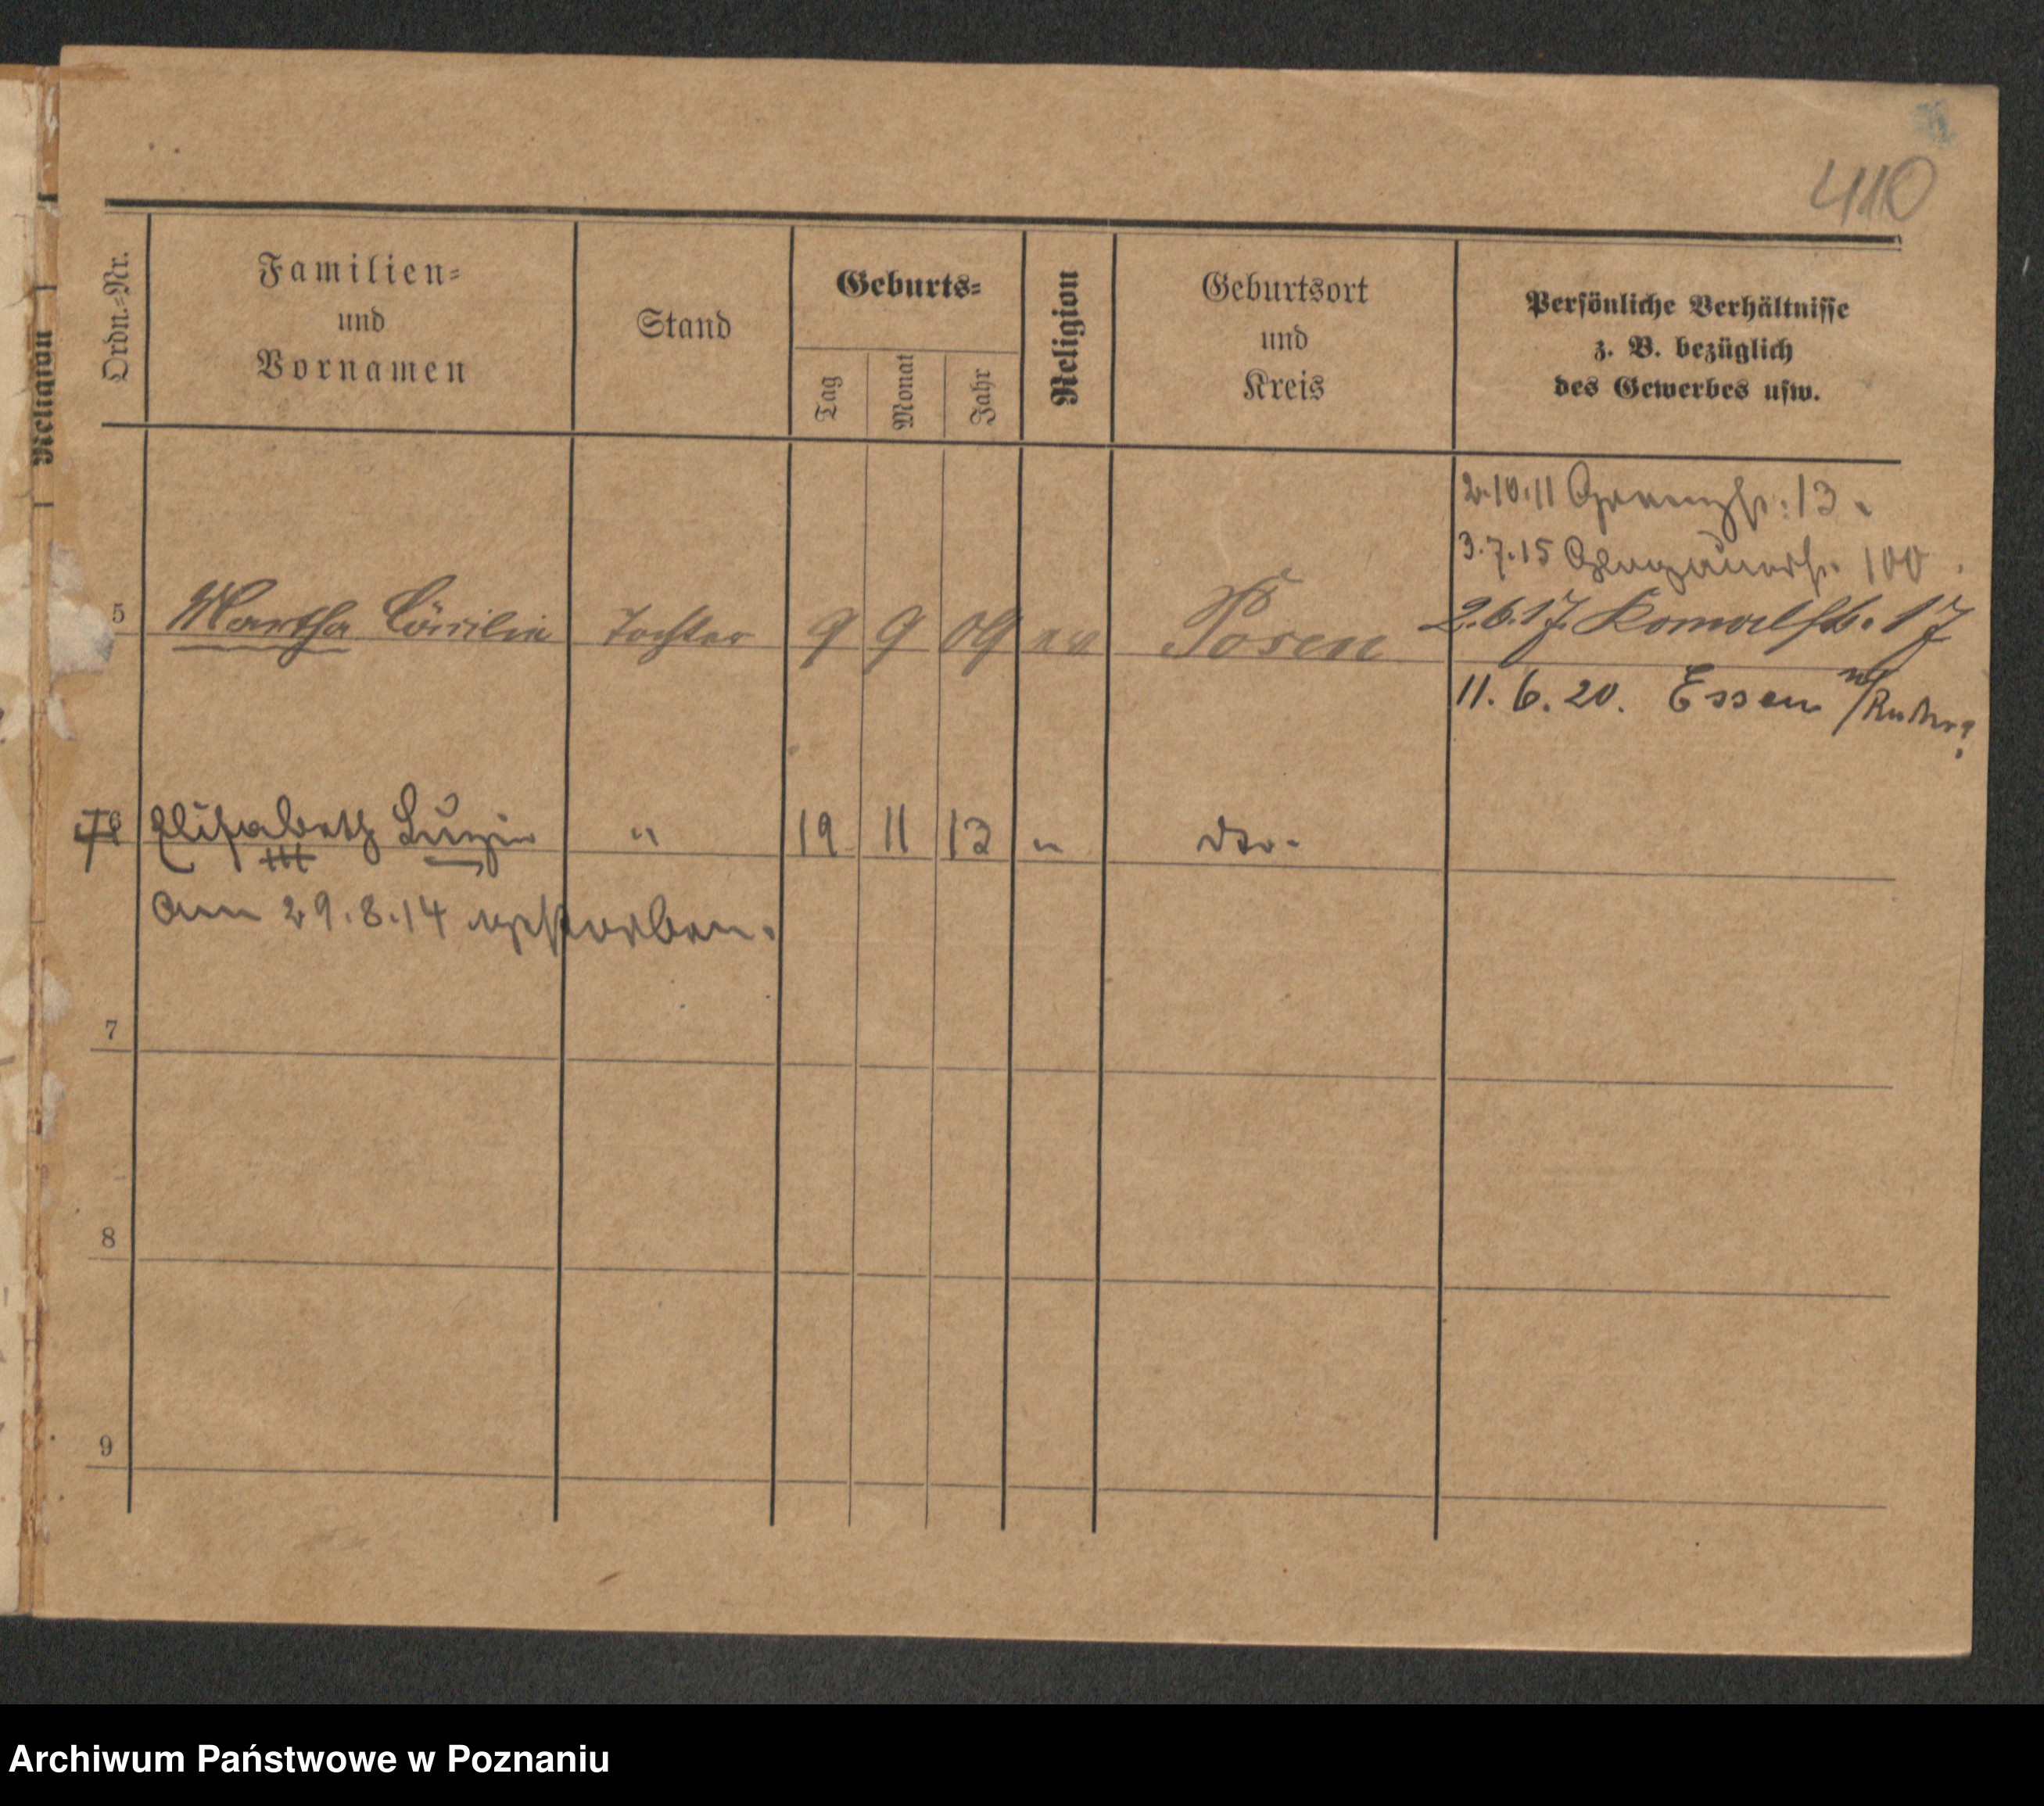 410
Ordn.-Nr.
Familien-
und
Vornamen
Stand
Geburts-
Tag
Monat
Jahr
Religion
Geburtsort
und
Kreis
Persönliche Verhältnisse
z. B. bezüglich
des Gewerbes usw.
Religion
2.10.11 Grenzstr. 13.
3.7.15 Glogauerstr. 100.
5 Martha Cäcilie Tochter 9 9 09 ev Posen 2.6.17. 17
11. 6. 20. Essen a/Ruhr?
6 Elisabeth " 19 11 13 " dto.
Am 29.8.14 gestorben.
7
8
9
Archiwum Państwowe w Poznaniu